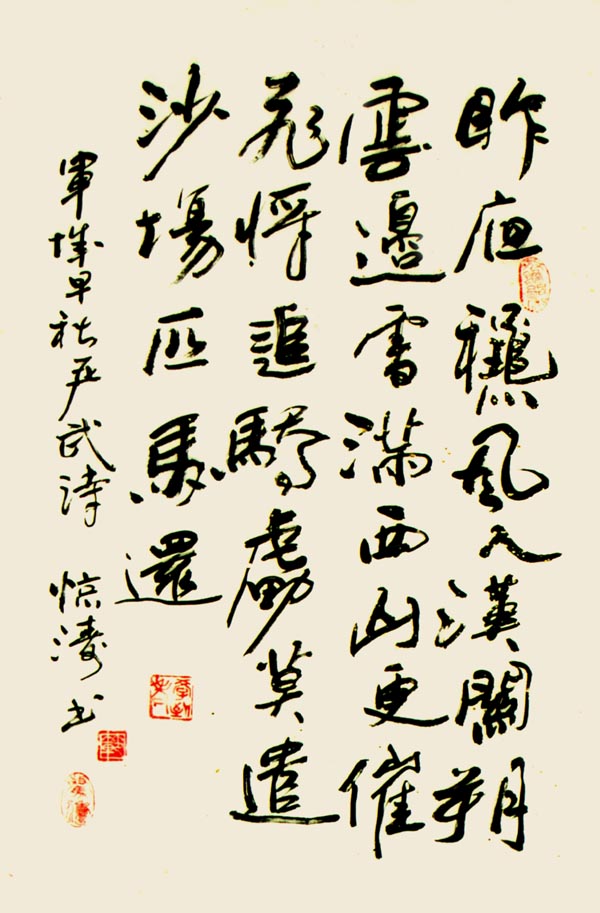 昨夜龝風入漢關朔
雲邊雪滿西山更催
飛將追驕虜莫遣
沙場匹馬還
軍城早秋严武诗 惊涛书